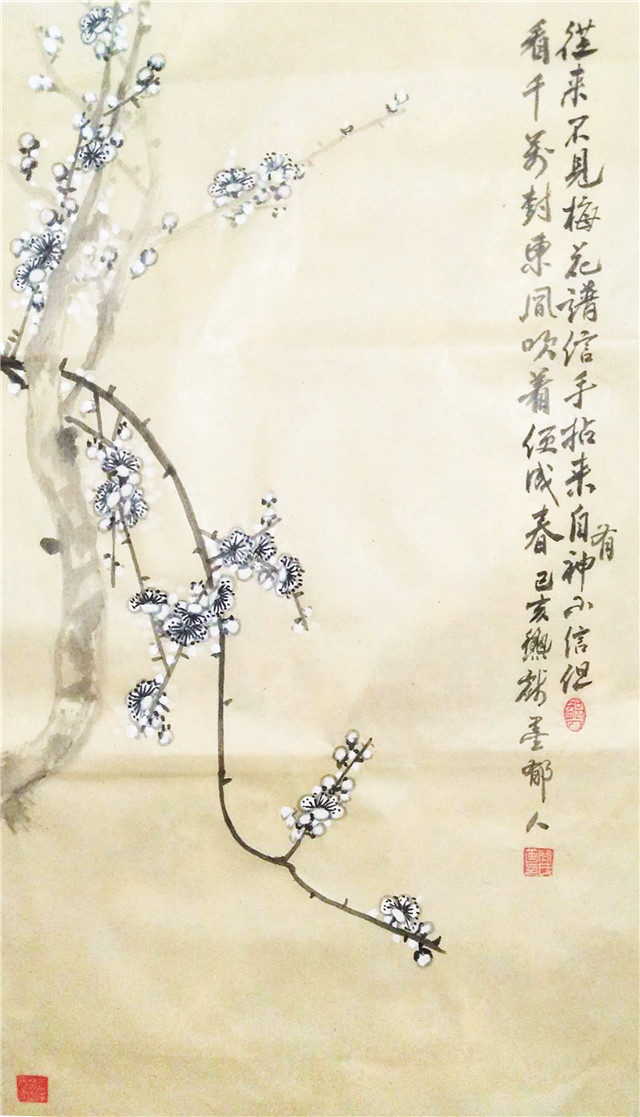 從来不見梅花譜信手拈来自神不信但
有
看千萬封東風吹着便成春己亥墨郁人